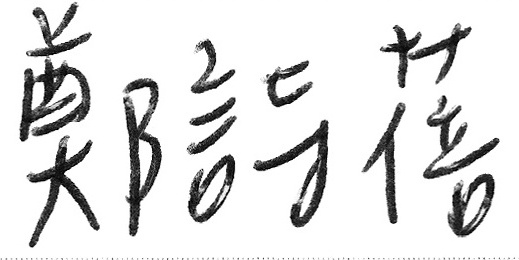 鄭詩蓓